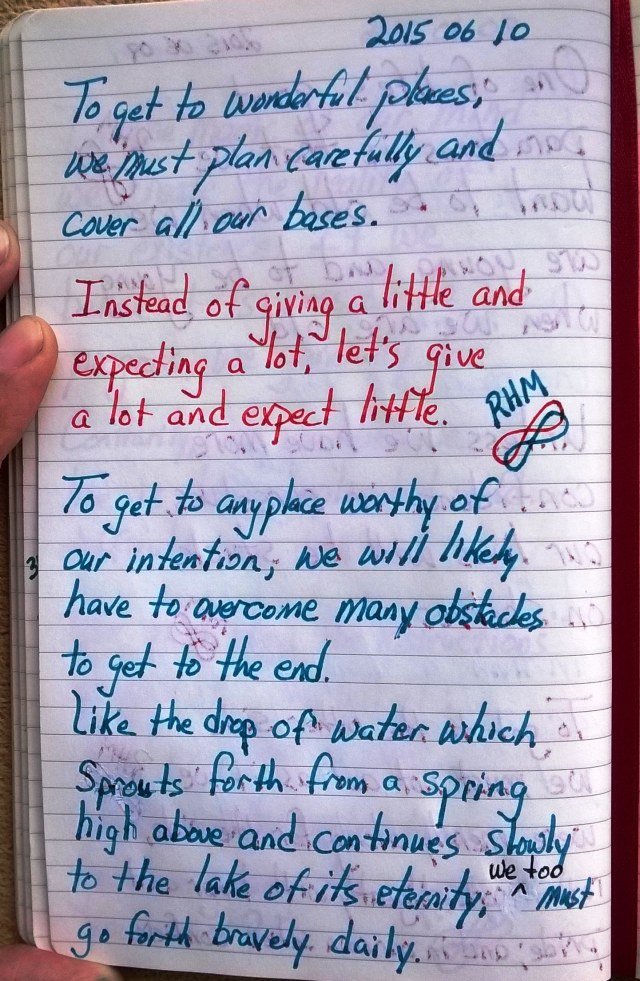 2015 06 10
To get to wonderful places,
we must plan carefully and
cover all our bases.
Instead of giving a little and
expecting a lot, let's give
a lot and expect little.
RHM
To get to anyplace worthy of
our intention, we will likely
have to overcome many obstacles
to get to the end.
Like the drop of water which
Sprouts forth from a spring
high above and continues slowly
to the lake of its eternity, ^ must
we too
go forth bravely daily.